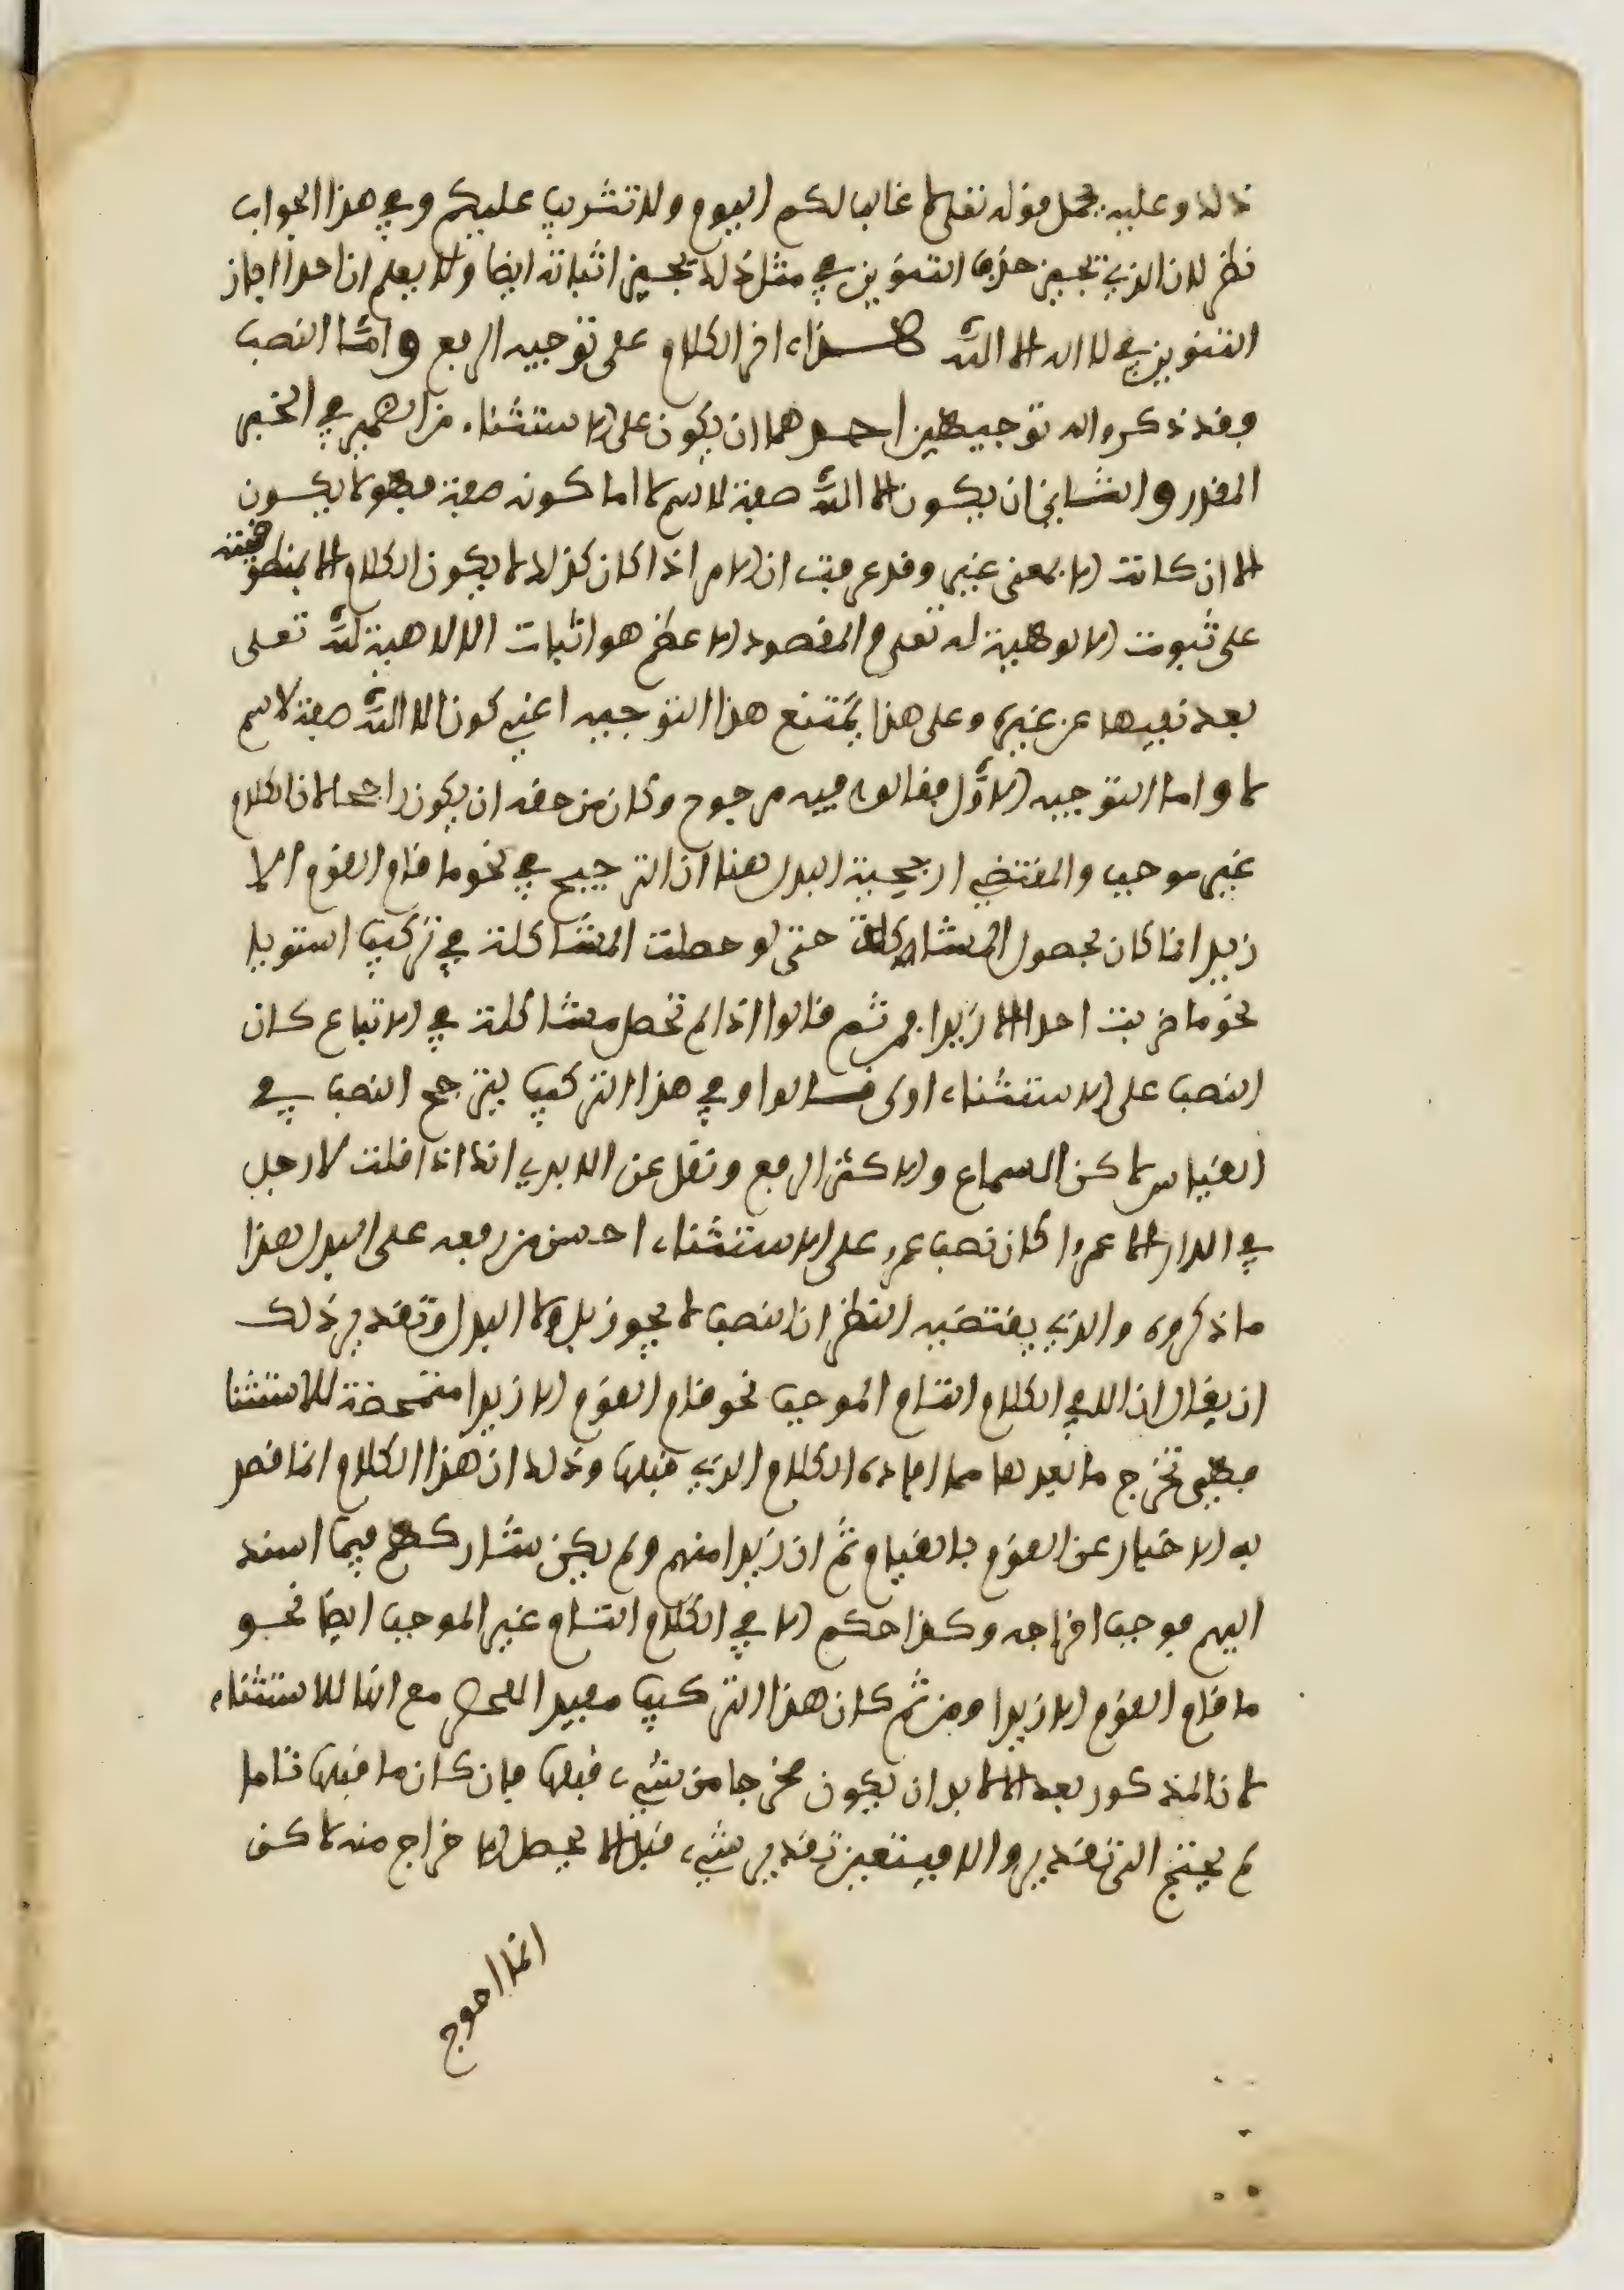 ذلك وعليه يحمل قوله تعلى لا غالب لكم اليوم ولا تثريب عليكم وفي هذا الجواب
نظر لان الذي يجيز حذف التنوين في مثل ذلك يجيز اثباته ايضا ولا يعلم ان احدا اجاز
التنوين في لا اله الا الله هذا اخر الكلام على توجيه الرفع واما النصب
فقد ذكروا له توجيهين احدهما ان يكون على الاستثناء من الضمير في الخبر
المقدر والثاني ان يكون الا الله صفة لاسم لا اما كونه صفة فهو لا يكون
الا ان كانت الا بمعنى غير وقد عرفت ان الامر اذا كان كذلك لا يكون الكلام الا بمنطوقه
على ثبوت الالوهية له تعلى والمقصود الاعظم هو اثبات الالاهية لله تعلى
بعد نفيها عن غيره وعلى هذا يمتنع هذا التوجيه اعني كون الا الله صفة لاسم
لا واما التوجيه الاول فقالوا فيه مرجوح وكان من حقه ان يكون راجحا لان الكلام
غير موجب والمقتضي ارجحية البدل هنا ان الترجيح في نحو ما قام القوم الا
زيد انما كان لحصول المشاكلة حتى لو حصلت المشاكلة في تركيب استويا
نحو ما ضربت احدا الا زيدا ثم قالوا اذا لم تحصل مشاكلة في الاتباع كان
النصب على الاستثناء اولى قالوا وفي هذا التركيب يترجح النصب في
القياس لاكن السماع والاكثر الرفع ونقل عن الابدي انك اذا قلت لا رجل
في الدار الا عمرا كان نصب عمر على الاستثناء احسن من رفعه على البدل هذا
ما ذكروه والذي يقتضيه النظر ان النصب لا يجوز بل ولا البدل وتقدير ذلك
ان يقال ان الا في الكلام التام الموجب نحو قام القوم الا زيدا متمحضة للاستثنا
فهي تخرج ما بعدها مما افاده الكلام الذي قبلها وذلك ان هذا الكلام انما قصد
به الاخبار عن القوم بالقيام ثم ان زيدا منهم ولم يكن شاركهم فيما اسند
اليهم فوجب اخراجه وكذا حكم الا في الكلام التام غير الموجب ايضا نحو
ما قام القوم الا زيدا ومن ثم كان هذا التركيب مفيد اللحصر مع انها للاستثناء
لان المذكور بعد الا لا بد ان يكون مخرجا من شيء قبلها فان كان ما قبلها تاما
لم يحتج الى تقدير والا فيتعين تقدير شيء قبل الا يحصل الاخراج منه لاكن
انما احوج